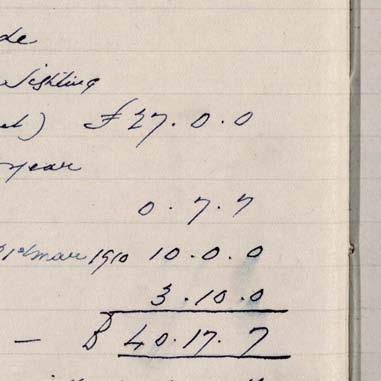 de
Lighting
et) £ 27. 0. 0
year
0. 7. 7
31st Mar 1910 10. 0. 0
3. 10. 0
— £ 40. 17. 7